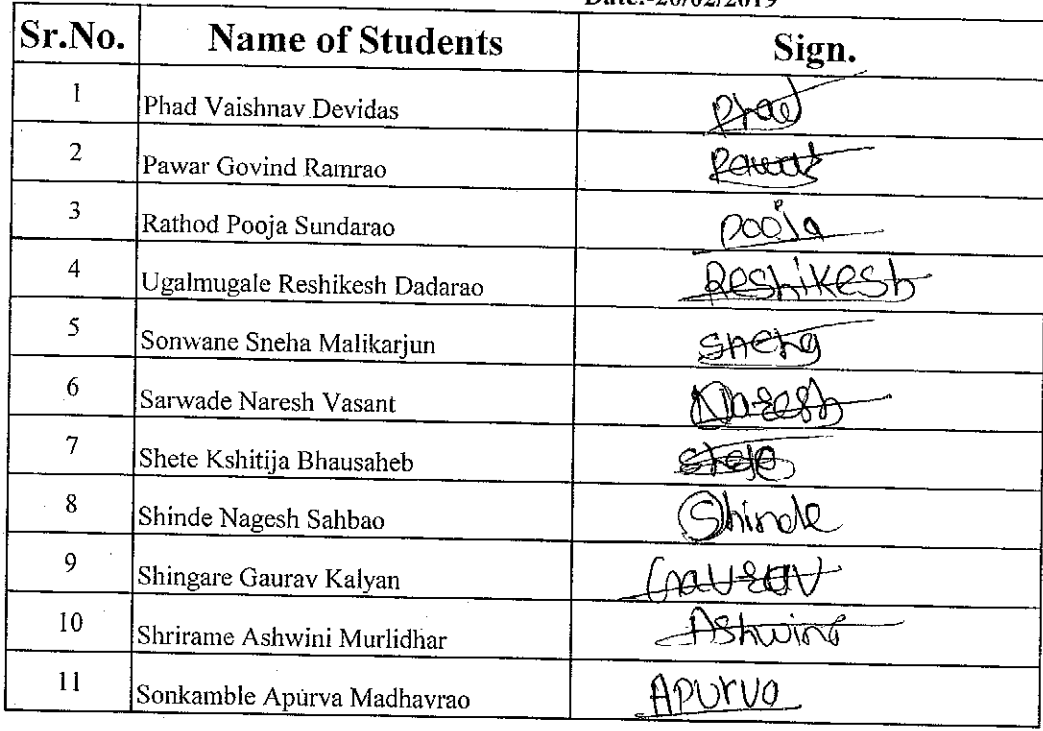 Date:-26/02/2019
Sr.No. Name of Students Sign.
1 Phad Vaishnav Devidas Phad
2 Pawar Govind Ramrao Pawar
3 Rathod Pooja Sundarao Pooja
4 Ugalmugale Reshikesh Dadarao Reshikesh
5 Sonwane Sneha Malikarjun Sneha
6 Sarwade Naresh Vasant Naresh
7 Shete Kshitija Bhausaheb Shete
8 Shinde Nagesh Sahbao Shinde
9 Shingare Gaurav Kalyan Gaurav
10 Shrirame Ashwini Murlidhar Ashwini
11 Sonkamble Apurva Madhavrao Apurva